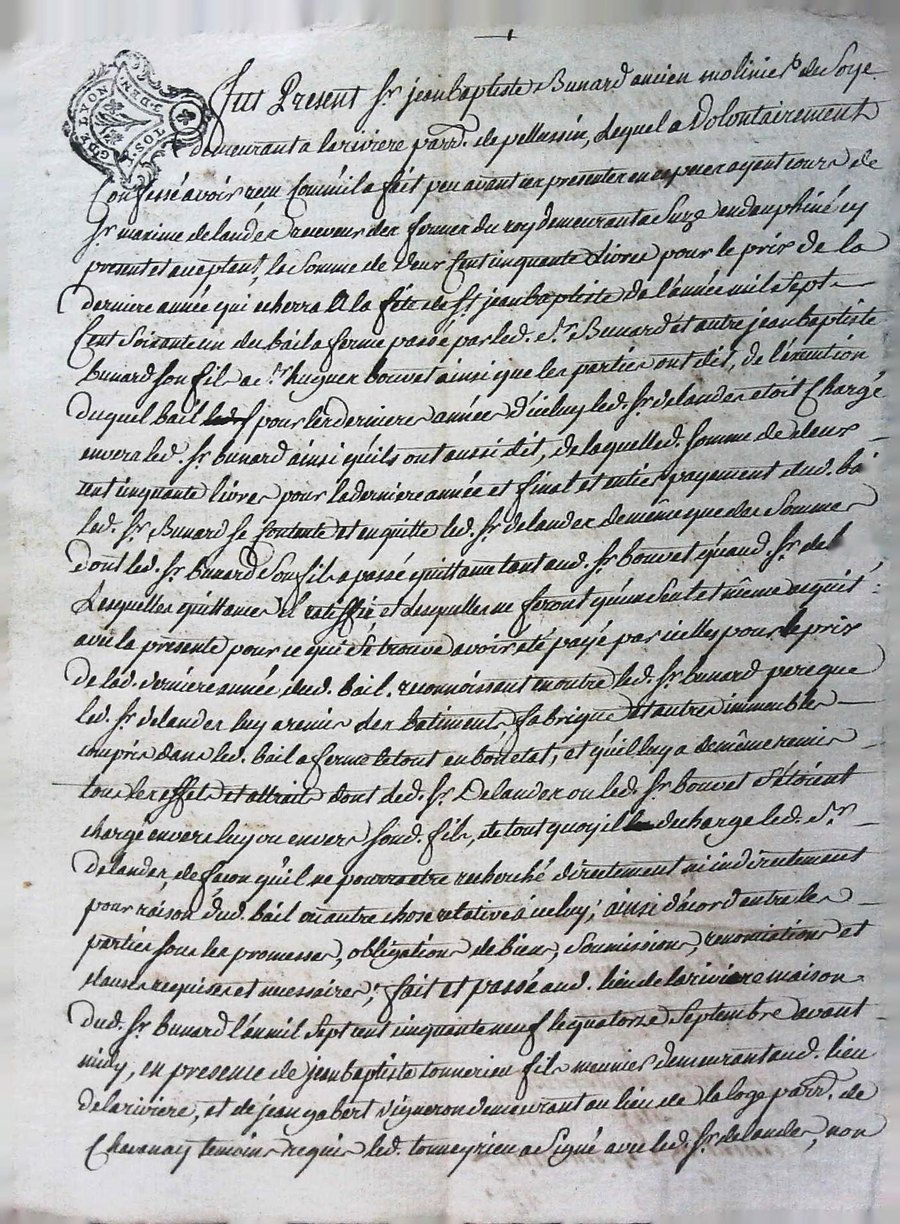 G. DE LYON
2. DEN
Fut Present Sr. jean baptiste Bunard ancien molinier de Soye
demeurant a lariviere parr. de pellussin, Lequel a Volontairement
Confessé avoir reçu Comme il a fait peu avant ces presentes en especes ayent cours de
Sr. maxime delandes receveur des fermes du roy demeurant a en dauphiné icy
present et acceptant, la Somme de deux Cent cinquante livres pour le prix de la
derniere année qui echerra A la fête de St. jean baptiste de l'année mil Sept
Cent Soixante un du bail a ferme passé par led. Sr. Bunard et autre jean baptiste
bunard Son fils a Sr. hugues bouvet ainsi que les parties ont dit, de l'exeution
duquel bail pour les dernieres années d'iceluy led. Sr. delandes etoit Chargé
envers led. Sr. bunard ainsi qu'ils ont aussi dit, de laquelle d. Somme de deux
cent cinquante livres pour la derniere année et final et entier payement dud. ba
led. Sr. Bunard Se Contente et en quitte led. Sr. delandes de même que des Sommes
dont led. Sr. bunard Son fils a passé quittance tant aud. Sr. bouvet qu'aud. Sr. del
Lesquelles quittances il ratiffie, et desquelles ne feront qu'un Seul et même acquit
avec la presente pour ce qui Se trouve avoir été payé par icelles pour le prix
de lad. derniere année dud. bail, reconnoissant en outre led. Sr. bunard pere que
led. Sr. delandes luy a remis des batiments, fabrique et autres immeubles
compris dans led. bail a ferme le tout en bon etat, et qu'il luy a de même remis
tous les effets et attraits dont led. Sr. Delandes ou led. Sr. bouvet S'étoient
chargé envers luy ou envers Sond. fils, de tout quoy il decharge led. Sr.
delandes de façon qu'il ne pourra etre recherché directement ni indirectement
pour raison dud. bail ou autre chose relatives à iceluy; ainsi d'acord entre les
parties Sous les promesses, obligations de biens, Soumissions, renonciations et
clauses requises et necessaires; fait et passé aud. lieu de lariviere maison
dud. Sr. bunard l'an mil Sept cent cinquante neuf le quatorze Septembre avant
midy, en presence de jean baptiste tonnerieu fils meunier demeurant aud. lieu
de lariviere, et de jean gabert vigneron demeurant au lieu de la loge parr. de
Chavanay temoins requis led. tonneyrieu a Signé avec led. Sr. delandes, non